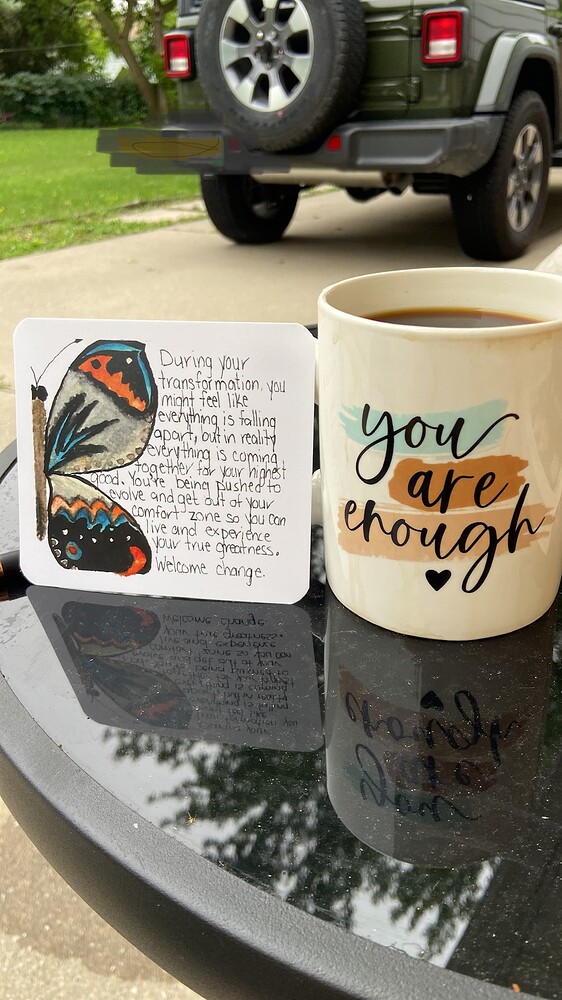 During your
transformation, you
might feel like
everything is falling
apart, but in reality
everything is coming
together for your highest
good. You're being pushed to
evolve and get out of your
comfort zone so you can
live and experience
your true greatness.
Welcome change.
you
are
enough